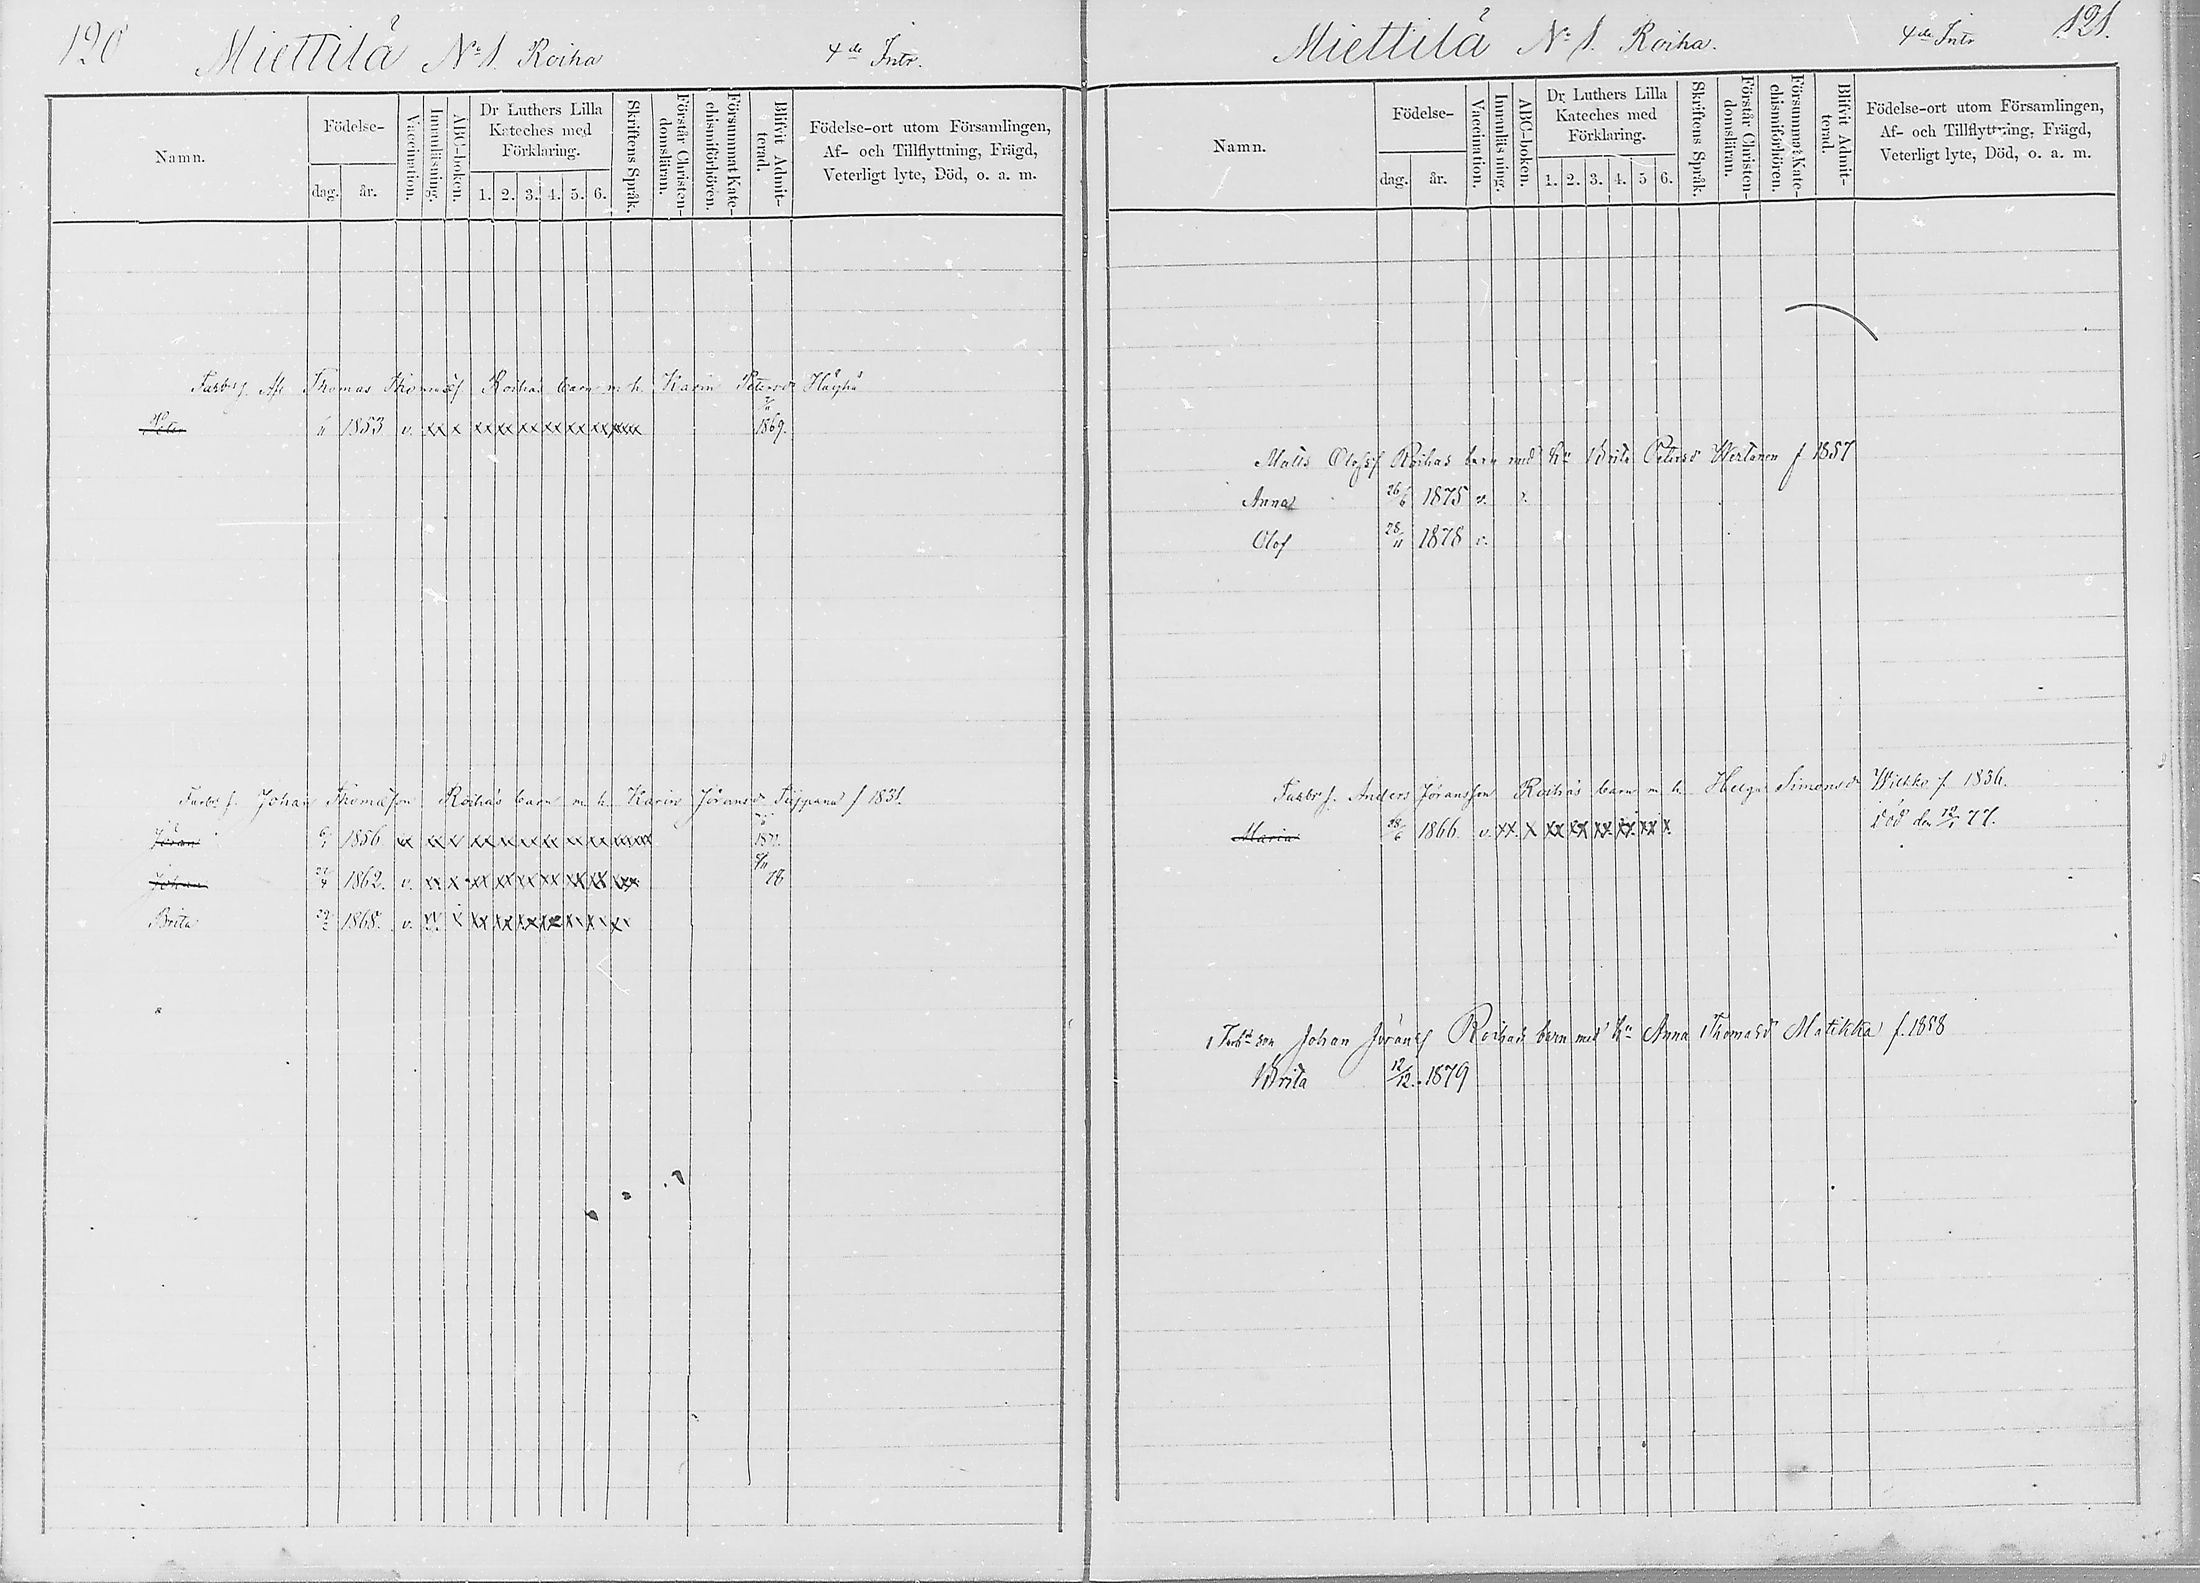 120 Miettilä No 1. Roiha 4de Intr.
Namn.
Födelse-
dag. år.
Vaccination.
Innanläsning.
ABC-boken.
Dr Luthers Lilla Kateches med Förklaring.
1. 2. 3. 4. 5. 6.
Skriftens Språk.
Förstår Christen-domsläran.
Försummat Kate-chismiförhören.
Blifvit Admit-terad.
Födelse-ort utom Församlingen,
Af- och Tillflyttning, Frägd,
Veterligt lyte, Död, o. a. m.
Thomas Roihas barn m h. Karin Petersdr Häyhä
1853 v. xx x xx xx xx xx xx xx 1869.
Farbr s. Johan Thomasson Roihas barn m h. Karin Jöransdr f 1831.
Jöran 1856
Johan 1862. v. 78
Brita 1868. v.
Miettilä No 1. Roiha. 4de Intr 121.
Namn.
Födelse-
dag. år.
Vaccination.
Innanläsning.
ABC-boken.
Dr Luthers Lilla Kateches med Förklaring.
1. 2. 3. 4. 5 6.
Skriftens Språk.
Förstår Christen-domsläran.
Försummat Kate-chismiförhören.
Blifvit Admit-terad.
Födelse-ort utom Församlingen,
Af- och Tillflyttning, Frägd,
Veterligt lyte, Död, o. a. m.
Matts Olofss Roihas barn med hu Brita Petersd Wertanen f 1857
Anna 26/6 1875 v.
Olof 28/11 1878 v.
Farbr s. Anders Jöransson Roihas barn m h. Helga Simonsdr f 1836.
Maria 28/6 1866. v. xx x xx xx xx xx xx x död den 12/1 77.
Johan Jöranss Roihas barn med hu Anna Thomasd Matikka f. 1858
Brita 12/12. 1879